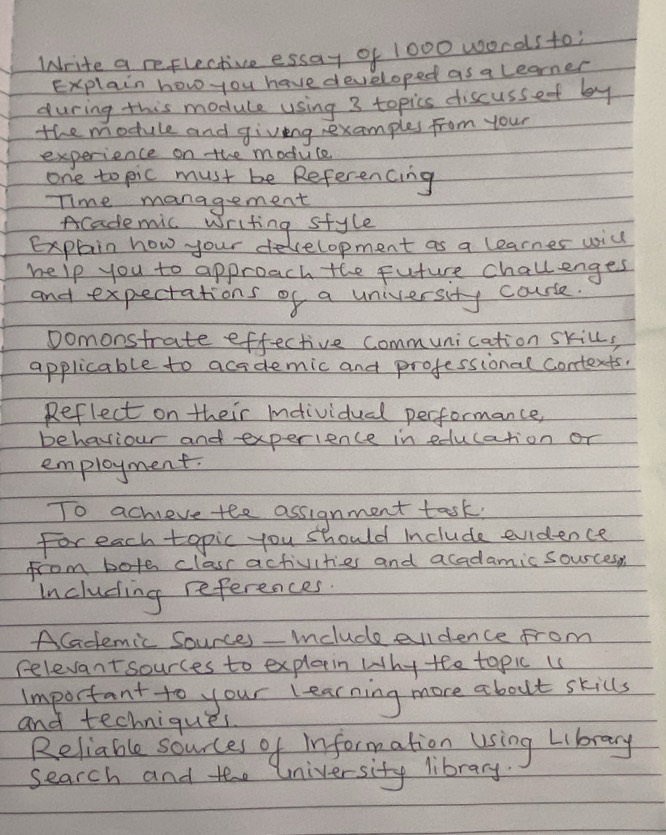 Write a reflective essay of 1000 words to:
Explain how you have developed as a Learner
during this module using 3 topics discussed by
the module and giving examples from your
experience on the module.
One topic must be Referencing
Time management
Academic writing style
Explain how your development as a learner will
help you to approach the future challenges
and expectations of a university course.
Domonstrate effective communication skills,
applicable to academic and professional contexts.
Reflect on their individual performance,
behaviour and experience in education or
employment.
To achieve the assignment task.
For each topic you should include evidence
from both class activities and acadamic sources,
Including references.
Academic Sources - Include evidence from
relevant sources to explain why the topic is
important to your learning more about skills
and techniques.
Reliable sources of information using Library
search and the university library.